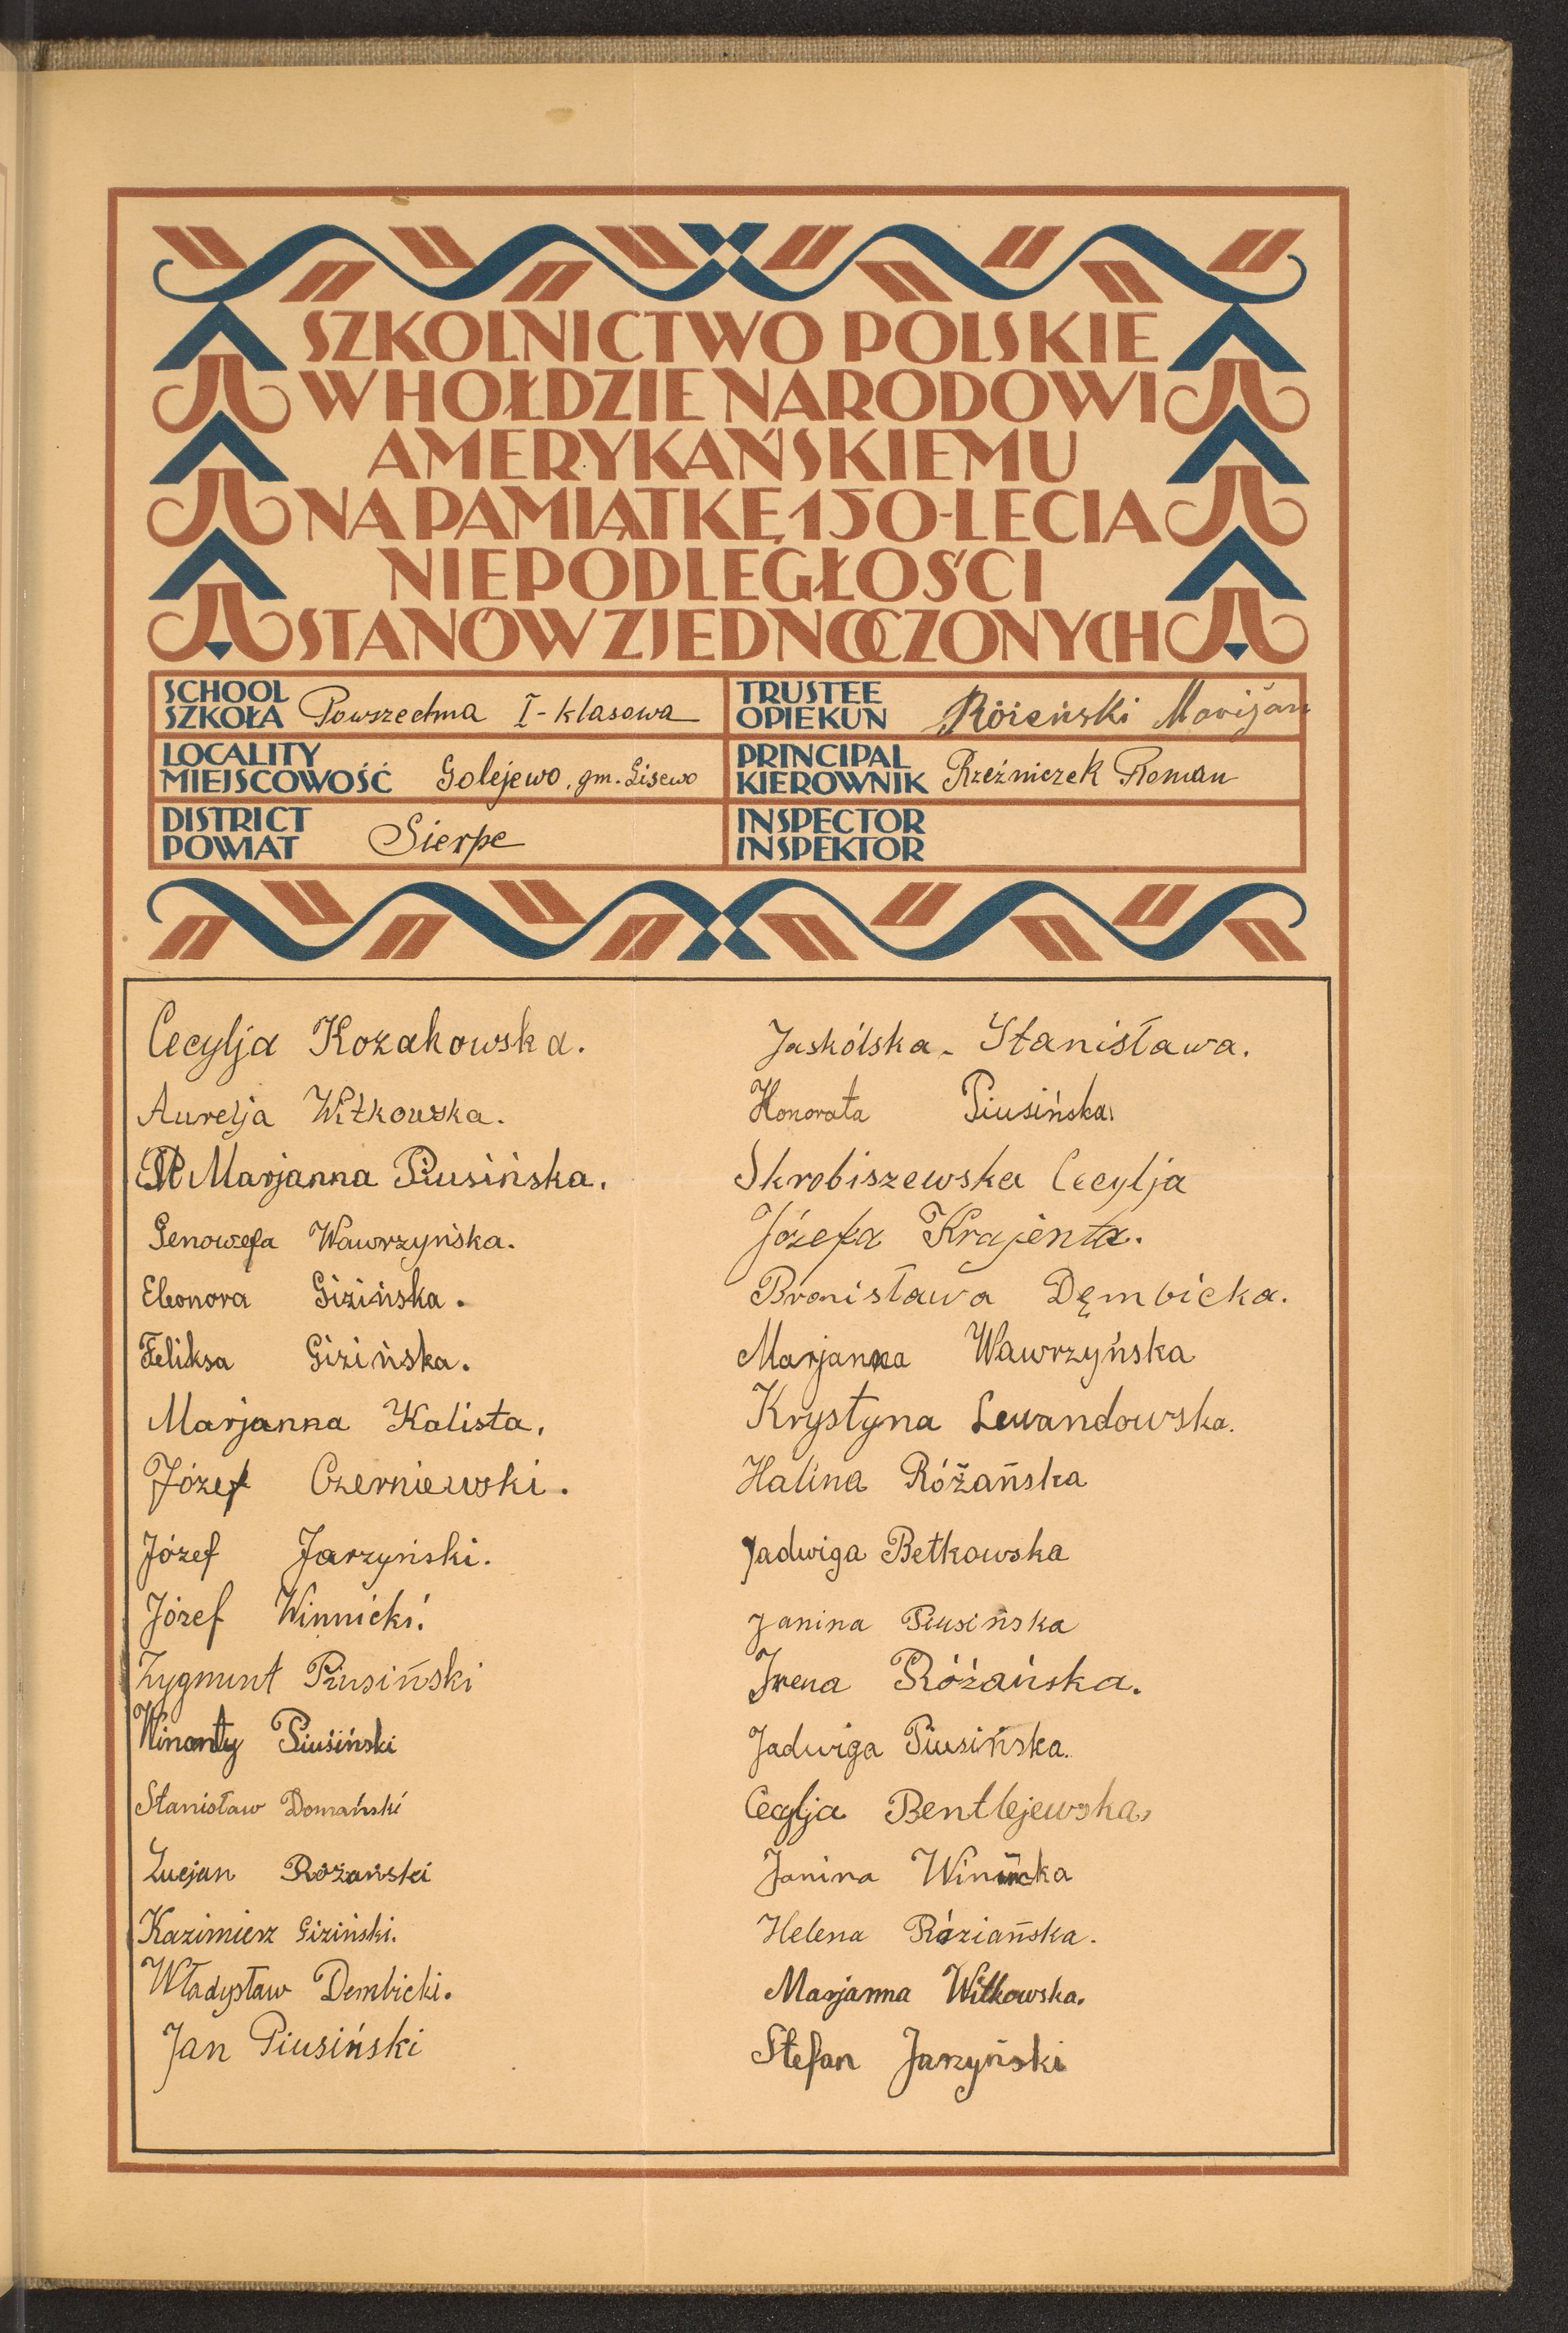 SZKOLNICTWO POLSKIE
W HOŁDZIE NARODOWI
AMERYKAŃSKIEMU
NA PAMIĄTKĘ 150-LECIA
NIEPODLEGŁOŚCI
STANÓW ZJEDNOCZONYCH
SCHOOL
SZKOŁA Powszechna I-klasowa
TRUSTEE
OPIEKUN Marijan
LOCALITY
MIEJSCOWOŚĆ Golejewo, gm. Lisewo
PRINCIPAL
KIEROWNIK Rzeźniczek Roman
DISTRICT
POWIAT Sierpc
INSPECTOR
INSPEKTOR
Cecylja Kozakowska.
Aurelja Witkowska.
Marjanna Piusińska.
Genowefa Wawrzyńska.
Eleonora Gizińska.
Feliksa Gizińska.
Marjanna Kalista.
Józef Czerniewski.
Józef Jarzyński.
Józef Winnicki.
Zygmunt Piusiński
Winanty Piusiński
Stanisław Domański
Lucjan Różański
Kazimierz Giziński.
Władysław Dembicki.
Jan Piusiński
Jaskólska. Stanisława.
Honorata Piusińska.
Skrobiszewska Cecylja
Józefa Krajenta.
Bronisława Dęmbicka.
Marjanna Wawrzyńska
Krystyna Lewandowska.
Halina Różańska
Jadwiga Betkowska
Janina Piusińska
Irena Różańska.
Jadwiga Piusińska.
Cecylja Bentlejewska,
Janina Winnicka
Helena Róziańska.
Marjanna Witkowska.
Stefan Jarzyński